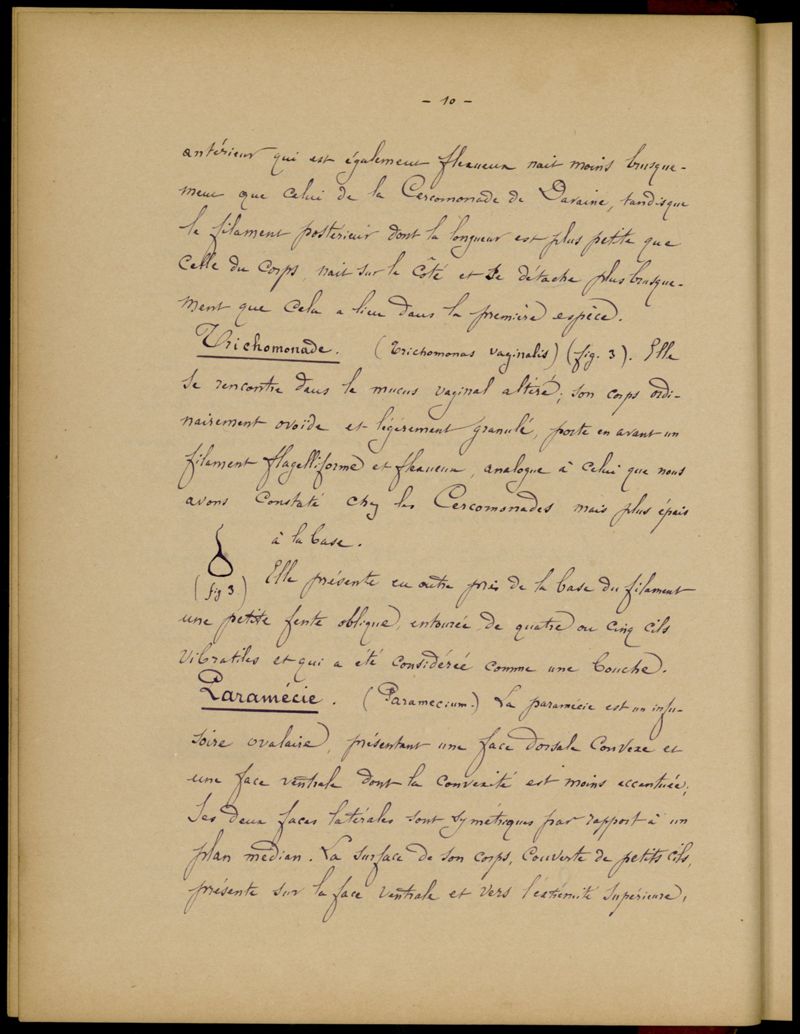 - 10 -
antérieur qui est également flexueux nait moins brusque-
ment que celui de la Cercomonade de Davaine, tandisque
le filament postérieur dont la longueur est plus petite que
celle du corps, nait sur le côté et se détache plus brusque-
ment que cela a lieu dans la première espèce.
Trichomonade. (Trichomonas vaginalis) (fig. 3). Elle
se rencontre dans le mucus vaginal altéré; son corps ordi-
nairement ovoïde et légèrement granulé, porte en avant un
filament flagelliforme et flexueux, analogue à celui que nous
avons constaté chez les Cercomonades mais plus épais
à la base.
(fig 3)
Elle présente en outre près de la base du filament
une petite fente oblique, entourée de quatre ou cinq cils
vibratiles et qui a été considérée comme une bouche.
Paramécie. (Paramecium.) La paramécie est un infu-
soire ovalaire, présentant une face dorsale convexe et
une face ventrale dont la convexité est moins accentuée;
ses deux faces latérales sont symétriques par rapport à un
plan médian. La surface de son corps, couverte de petits cils,
présente sur la face ventrale et vers l'extrémité supérieure,